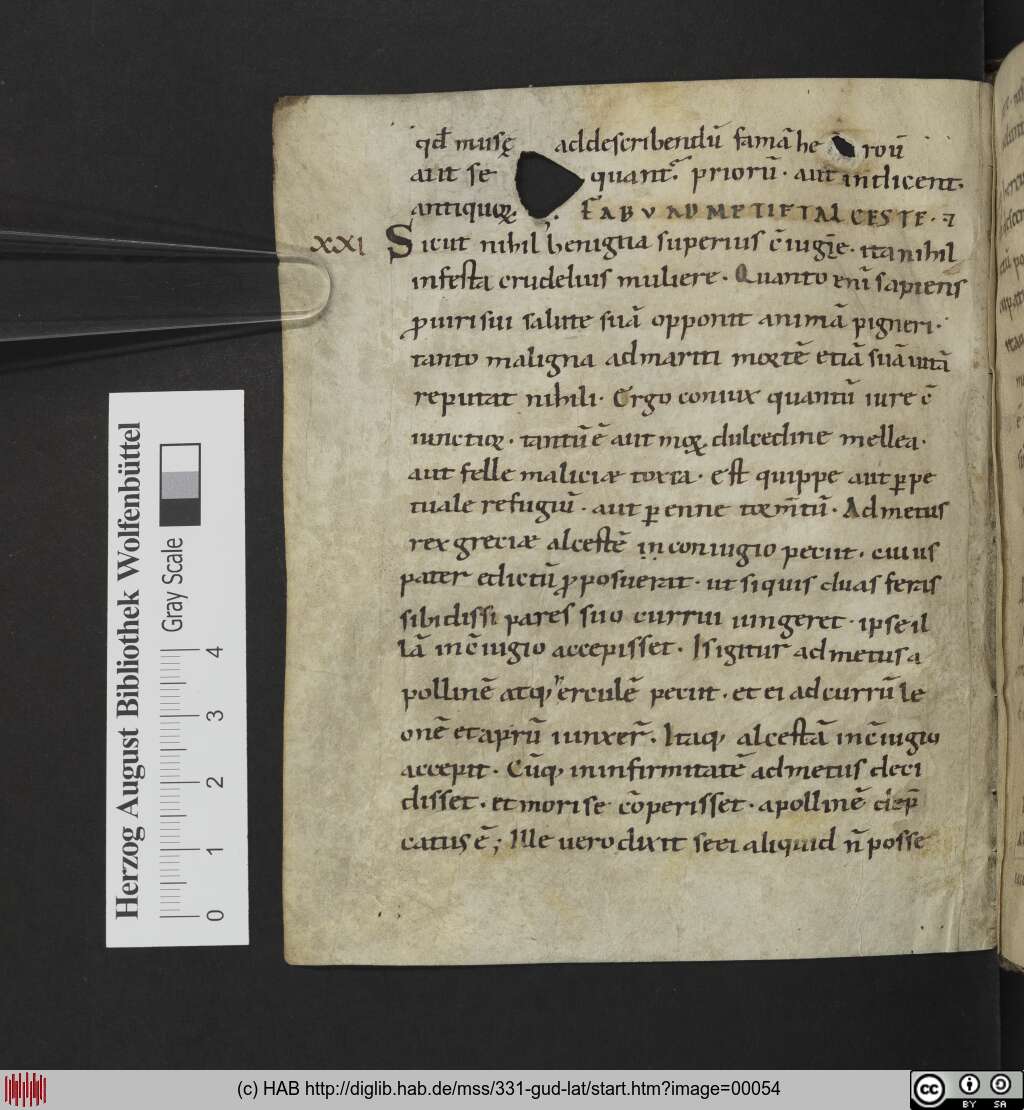 qđ musę addescribendū famā he roū
aut se quant᷑ priorū · aut indicent ·
antiquoꝝ · FABV ADMETI ET ALCESTE · ⁊
XXI Sicut nihil benignia superius c̄iugie · ita nihil
infesta crudelius muliere · Quanto enī sapiens
ꝓ uiri sui salute suā opponit animā pigneri ·
tanto maligna ad mariti mortē etiā suā uitā
reputat nihili · Ergo coniux quantū iure c̄
iunctioꝝ · tantū ē aut moꝝ dulcedine mellea ·
aut felle maliciæ toxia · est quippe aut ꝑpe
tuale refugiū · aut ꝑenne torm̄tū · Admetus
rex greciæ alcestē in coniugio petiit · cuius
pater edictū ꝓposuerat · ut si quis duas feras
sibi dissi pares suo currui iungeret · ipse il
lā in c̄iugio accepisset · Is igitur admetus a
pollinē atq; erculē petiit · et ei ad currū le
onē et aprū iunxer̄ · Itaq; alcestā in c̄iugio
accepit · Cūq; in infirmitatē admetus deci
disset · et mori se cōperisset · apollinē dep̄
catus ē ; Ille uero dixit se ei aliquid n̄ posse
Herzog August Bibliothek Wolfenbüttel
Gray Scale
0 1 2 3 4
(c) HAB http://diglib.hab.de/mss/331-gud-lat/start.htm?image=00054
cc BY SA